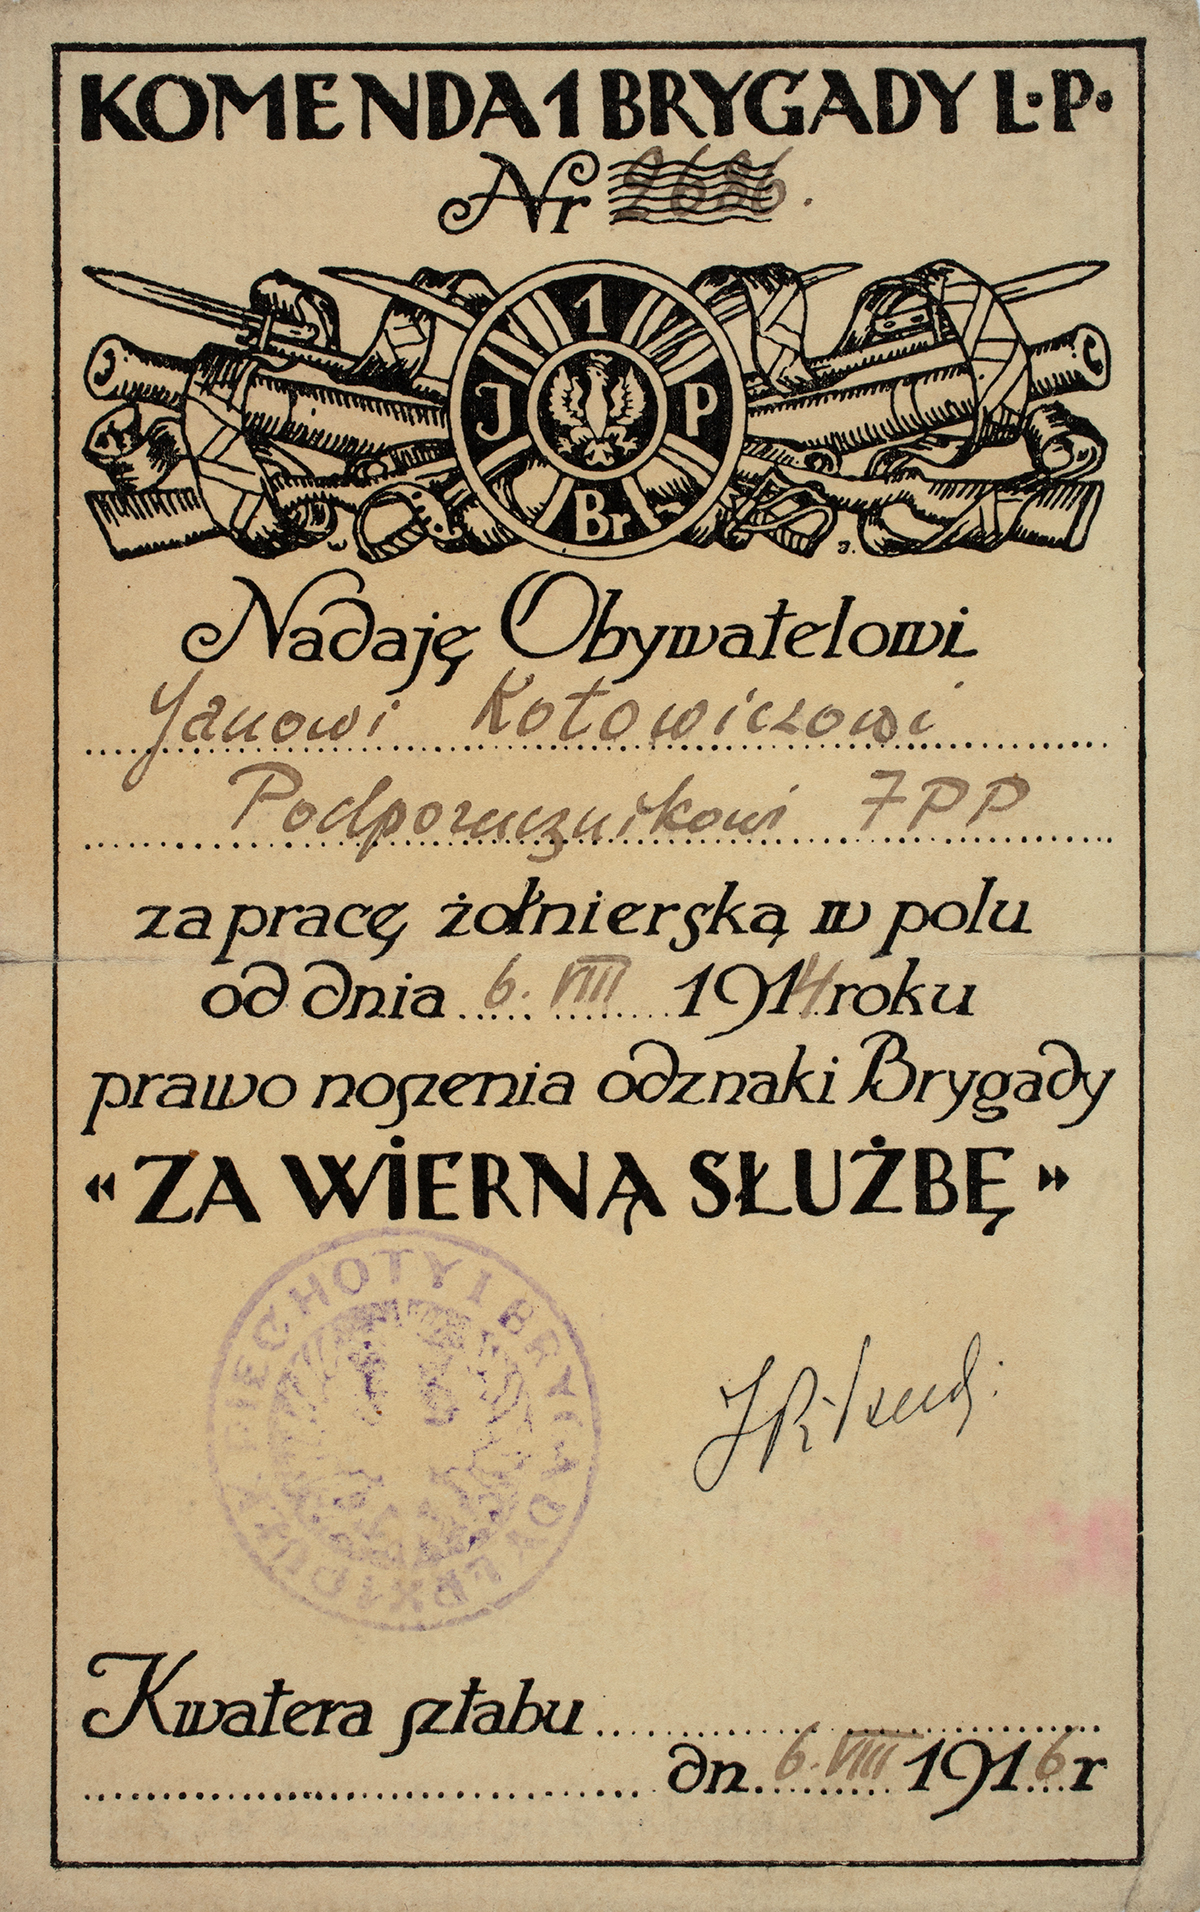 KOMENDA 1 BRYGADY L·P·
Nr 2686.
1
J P
Br
Nadaję Obywatelowi
Janowi Kotowiczowi
Podporucznikowi 7 PP
za pracę żołnierską w polu
od dnia 6. VIII 1914 roku
prawo noszenia odznaki Brygady
« ZA WIERNĄ SŁUŻBĘ »
PIECHOTY I BRYGADY
Kwatera sztabu
dn. 6. VIII 1916 r